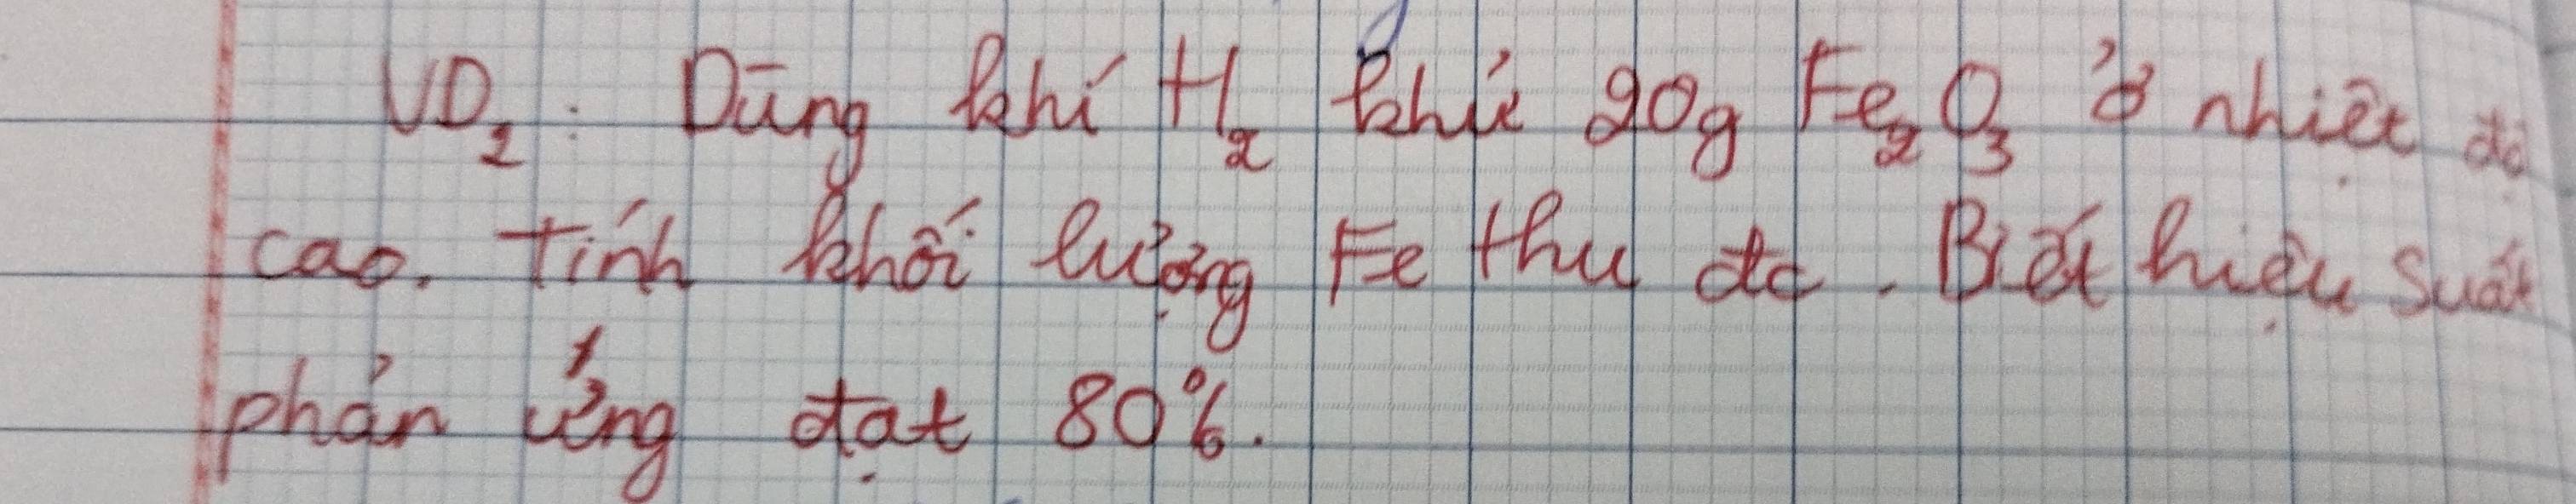 VD₂: Dùng khí H₂ khử 20g Fe₂O₃ ở nhiệt độ
cao. Tính khối lượng Fe thu đc. Biết hiệu suất
phản ứng đạt 80%.